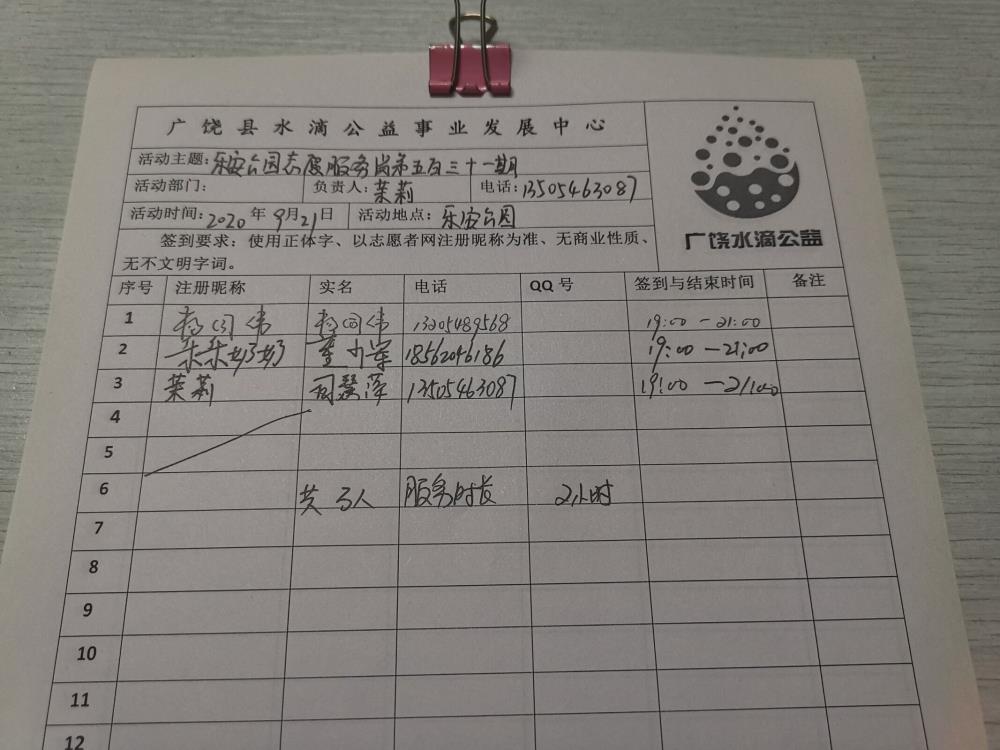 广饶县水滴公益事业发展中心
活动主题：乐安公园志愿服务岗第五百三十一期
活动部门： 负责人：茉莉 电话：13505463087
活动时间：2020年9月21日 活动地点：乐安公园
签到要求：使用正体字、以志愿者网注册昵称为准、无商业性质、
无不文明字词。
广饶水滴公益
序号 注册昵称 实名 电话 QQ号 签到与结束时间 备注
1 杨同伟 杨同伟 13205489568 19:00－21:00
2 朵朵奶奶 18562046186 19:00－21:00
3 茉莉 周慧萍 13505463087 19:00－21:00
4
5
6 共3人 服务时长 2小时
7
8
9
10
11
12